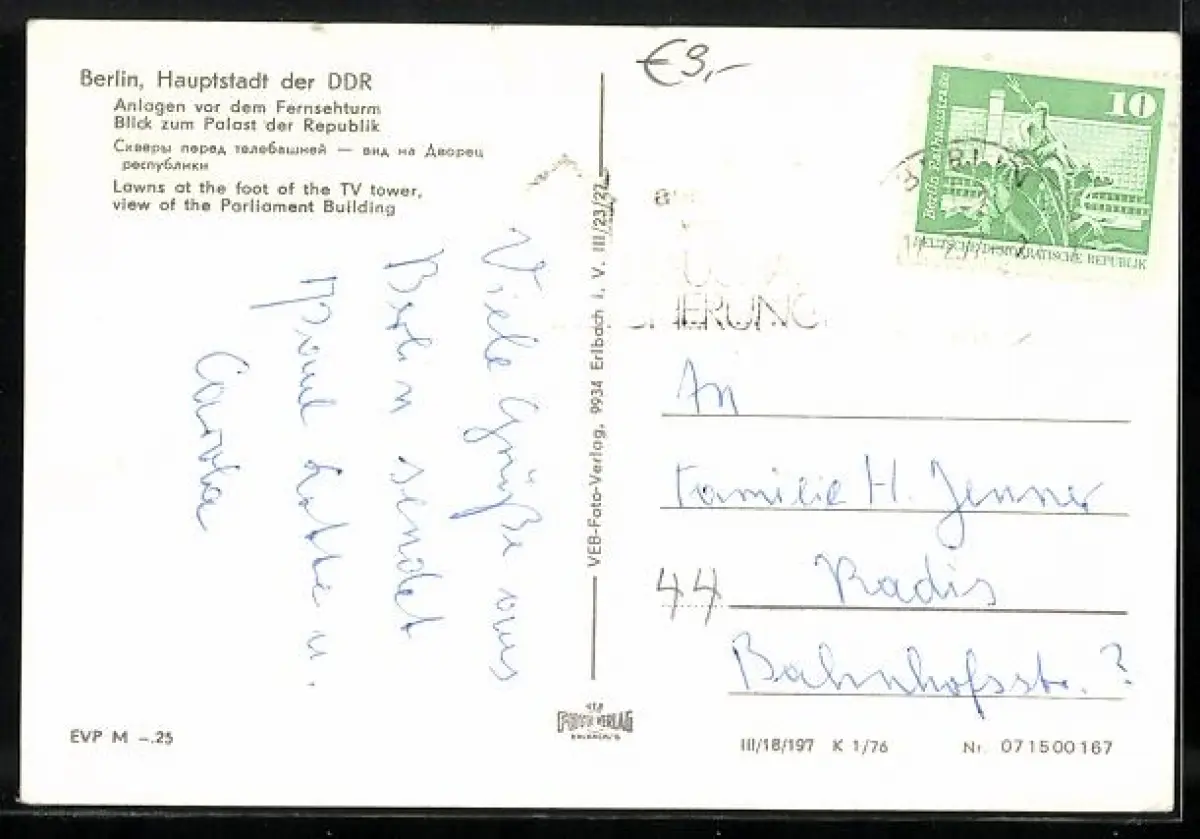 Berlin, Hauptstadt der DDR
Anlagen vor dem Fernsehturm
Blick zum Palast der Republik
Скверы перед телебашней — вид на Дворец
республики
Lawns at the foot of the TV tower,
view of the Parliament Building
Viele Grüße aus
Berlin sendet
Lotte u.
Carola
EVP M –.25
VEB-Foto-Verlag, 9934 Erlbach i. V. III/23/27
FOTO-VERLAG
€9,–
10
Berlin, Rathausstraße
DEUTSCHE DEMOKRATISCHE REPUBLIK
BERLIN
An
Familie H. Jenner
44 Radis
Bahnhofsstr. ?
III/18/197 K 1/76 Nr. 071500167